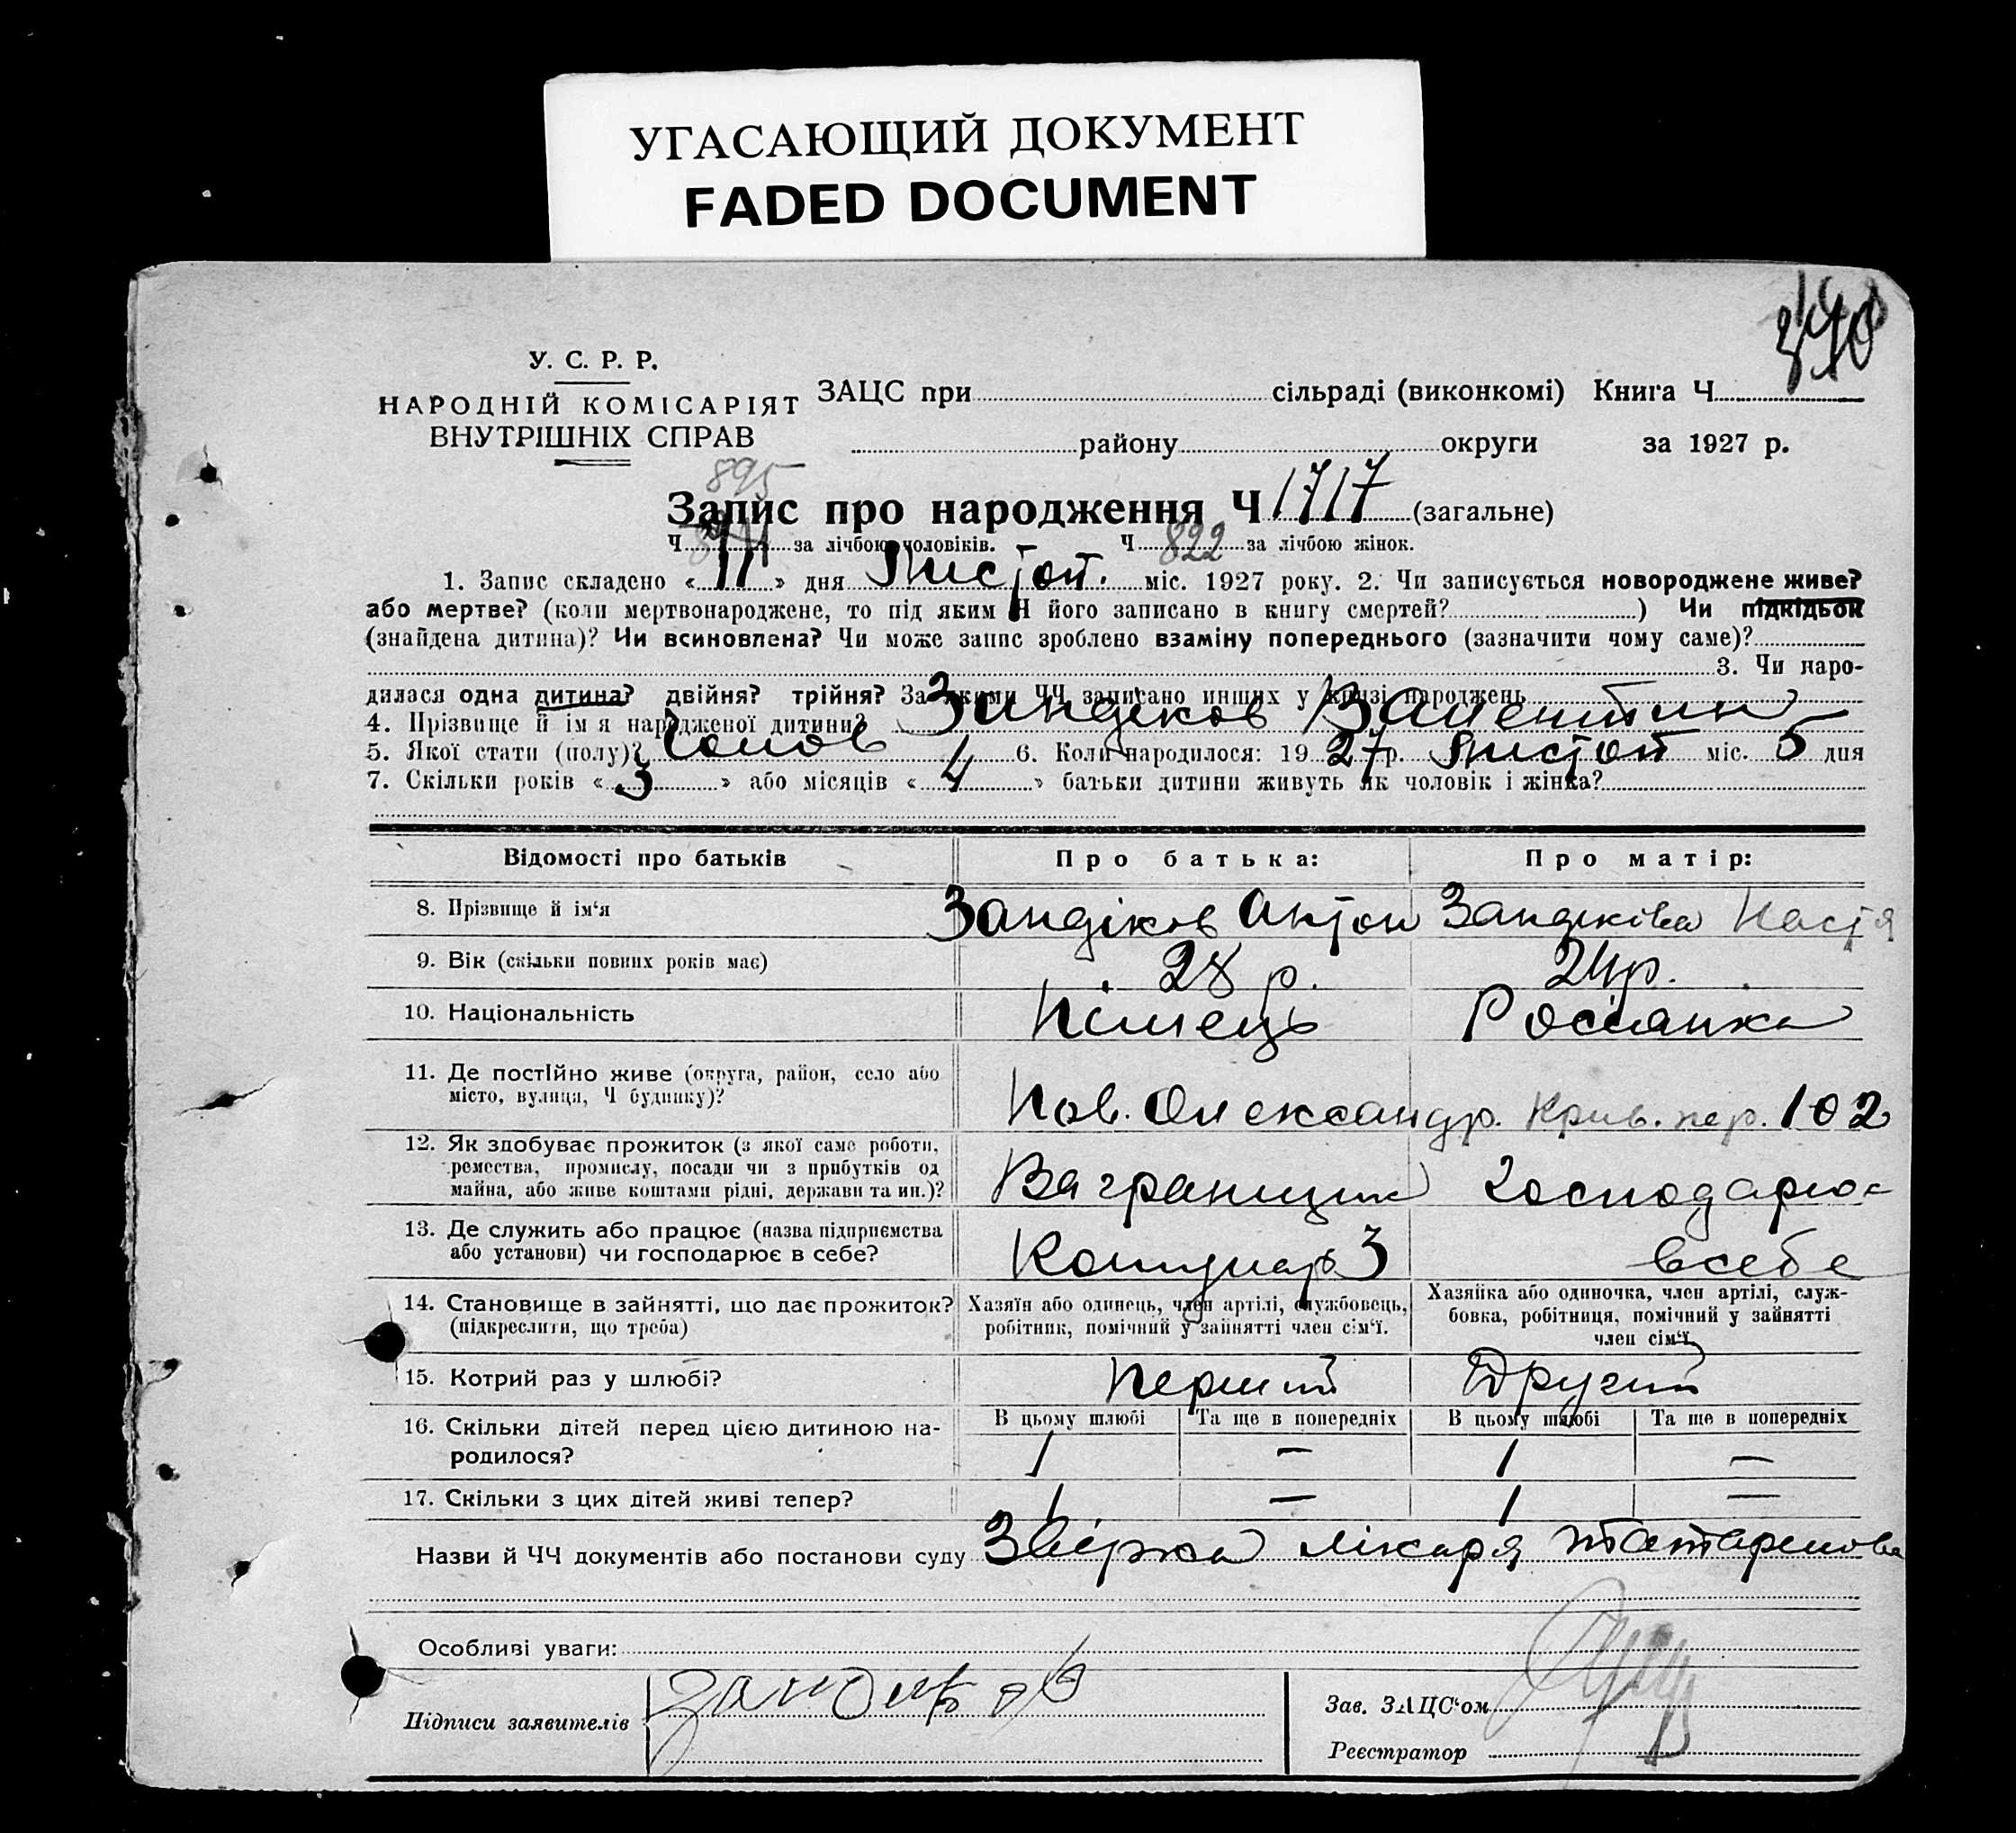 УГАСАЮЩИЙ ДОКУМЕНТ
FADED DOCUMENT
340
У. С. Р. Р.
НАРОДНІЙ КОМІСАРІЯТ
ВНУТРІШНІХ СПРАВ
ЗАЦС при сільраді (виконкомі) Книга Ч
району округи за 1927 р.
895
Запис про народження Ч 1717 (загальне)
Ч за лічбою чоловіків. Ч 822 за лічбою жінок.
1. Запис складено « 11 » дня Листоп. міс. 1927 року. 2. Чи записується новороджене живе?
або мертве? (коли мертвонароджене, то під яким Ч його записано в книгу смертей? ) Чи підкідьок
(знайдена дитина)? Чи всиновлена? Чи може запис зроблено взаміну попереднього (зазначити чому саме)?
3. Чи наро-
дилася одна дитина? двійня? трійня? За якими ЧЧ записано инших у книзі народжень
4. Прізвище й ім я народженої дитини? Зандіков Валентин
5. Якої стати (полу)? Чолов 6. Коли народилося: 19 27 р. Листоп міс. 5 дня
7. Скільки років « 3 » або місяців « 4 » батьки дитини живуть як чоловік і жінка?
Відомості про батьків Про батька: Про матір:
8. Прізвище й ім'я Зандіков Антон Зандікова Настя
9. Вік (скільки повних років має) 28 р. 24 р.
10. Національність Німець Росіянка
11. Де постІйно живе (округа, район, село або
місто, вулиця, Ч будинку)? Нов. Олександр. Крив. пер. 102
12. Як здобуває прожиток (з якої саме роботи,
ремества, промислу, посади чи з прибутків од
майна, або живе коштами рідні, держави та ин.)? Вагранщик Господарює
13. Де служить або працює (назва підприємства
або установи) чи господарює в себе? Комунар 3 всебе
14. Становище в зайнятті, що дає прожиток?
(підкреслити, що треба)
Хазяїн або одинець, член артілі, службовець,
робітник, помічний у зайнятті член сім'ї.
Хазяйка або одиночка, член артілі, служ-
бовка, робітниця, помічний у зайнятті
член сім'ї
15. Котрий раз у шлюбі? Перший Другий
В цьому шлюбі Та ще в попередніх В цьому шлюбі Та ще в попередніх
16. Скільки дітей перед цією дитиною на-
родилося? 1 — 1 —
17. Скільки з цих дітей живі тепер? 1 — 1 —
Назви й ЧЧ документів або постанови суду лікаря
Особливі уваги:
Підписи заявителів Зандиков
Зав. ЗАЦС'ом
Реєстратор